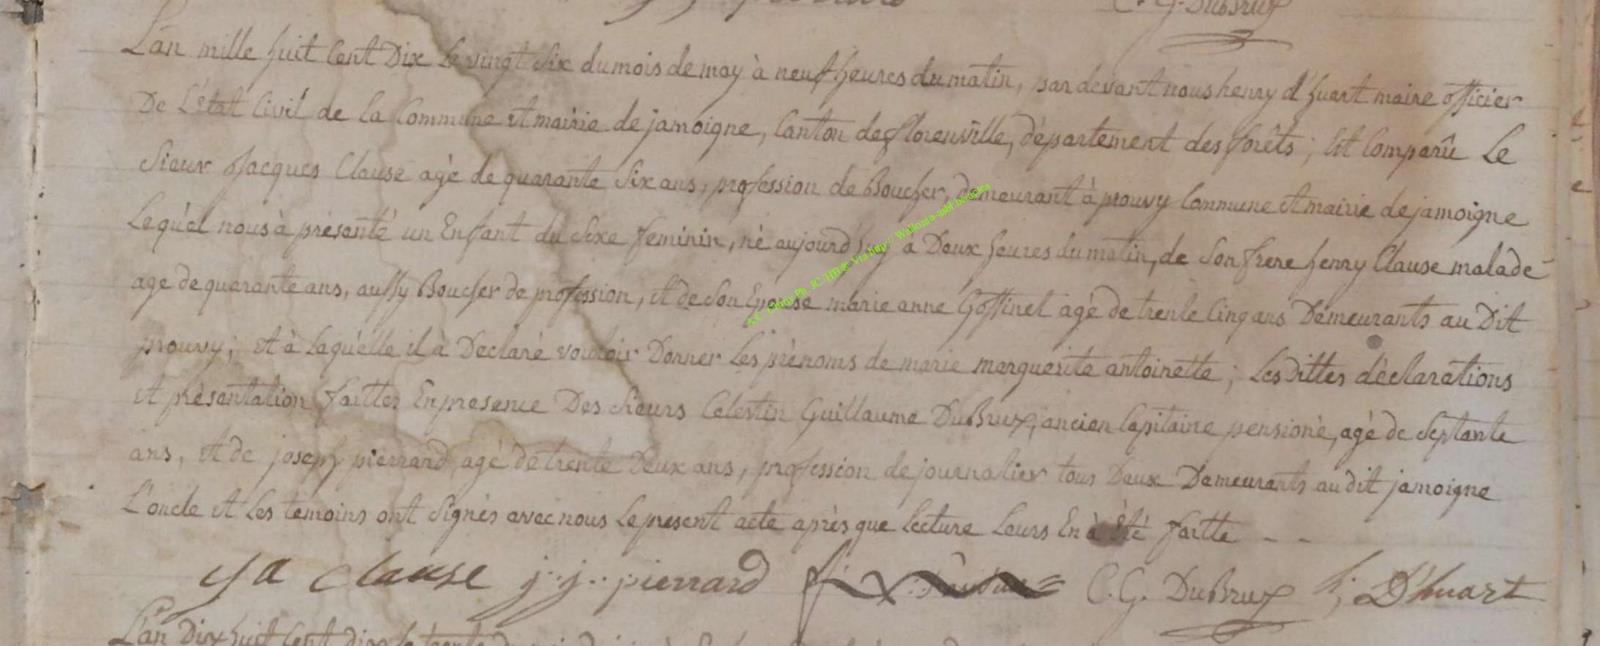 C. G. DuBrux
L'an mille huit Cent Dix le vingt Six du mois de may à neuf heures du matin, par devant nous henry d'huart maire officier
De L'état Civil de la Commune et mairie de jamoigne, Canton de florenville, département des forêts; Est Comparû Le
Sieur Jacques Clause agé de quarante Six ans, profession de Boucher, demeurant à prouvy Commune et mairie de jamoigne
Lequél nous à présenté un Enfant du Sixe feminin, né aujourd'huy à Deux heures du matin, de Son frere henry Clause malade
age de quarante ans, aussy Boucher de profession, et de Son Epouse marie anne Goffinet agé de trente Cinq ans Démeurants au Dit
prouvy; et à Laquélle il à Déclaré vouloir Donner Les prénoms de marie marguerite antoinette; Les Dittes déclarations
et présentation faittes En presence Des Sieurs Celestin Guillaume DuBrux, ancien Capitaine pensioné, agé de Septante
ans, et de joseph pierrard, agé de trente Deux ans, profession de journalier tous Deux Demeurants au dit jamoigne
L'oncle et Les temoins ont Signés avec nous Le present acte après que Lecture Leurs En à Eté faitte - -
ja clause j: j: pierrard C. G. DuBrux h; D'huart
L'an Dix huit Cent dix le trente